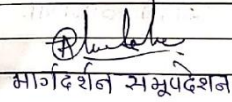 मार्गदर्शन समूपदेशन